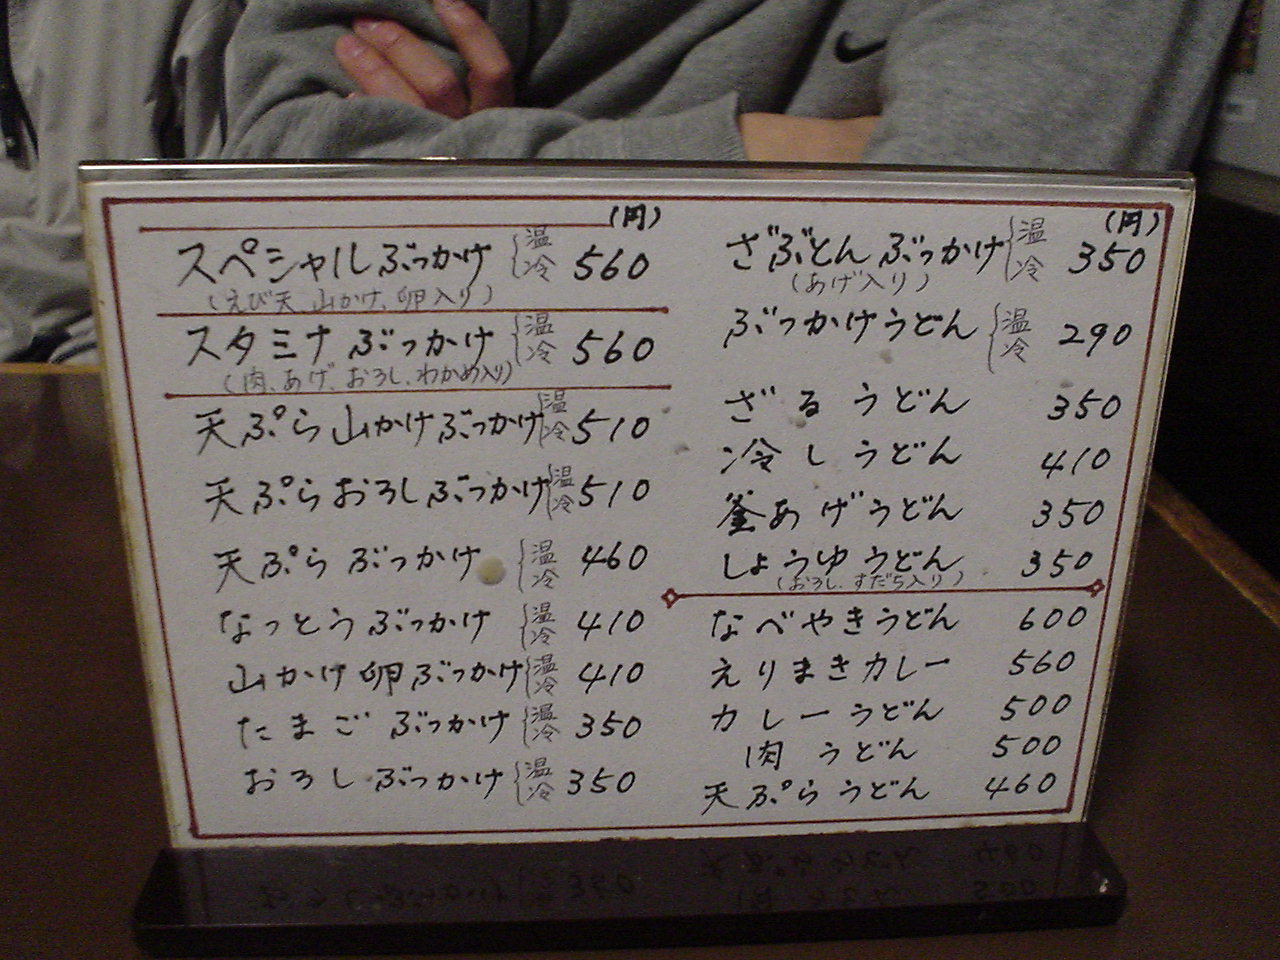 (円)
スペシャルぶっかけ {温 冷 560
(えび天、山かけ、卵入り)
スタミナぶっかけ {温 冷 560
(肉、あげ、おろし、わかめ入り)
天ぷら山かけぶっかけ {温 冷 510
天ぷらおろしぶっかけ {温 冷 510
天ぷらぶっかけ {温 冷 460
なっとうぶっかけ {温 冷 410
山かけ卵ぶっかけ {温 冷 410
たまごぶっかけ {温 冷 350
おろしぶっかけ {温 冷 350
(円)
ざぶとんぶっかけ {温 冷 350
(あげ入り)
ぶっかけうどん {温 冷 290
ざるうどん 350
冷しうどん 410
釜あげうどん 350
しょうゆうどん 350
(おろし、すだち入り)
なべやきうどん 600
えりまきカレー 560
カレーうどん 500
肉うどん 500
天ぷらうどん 460